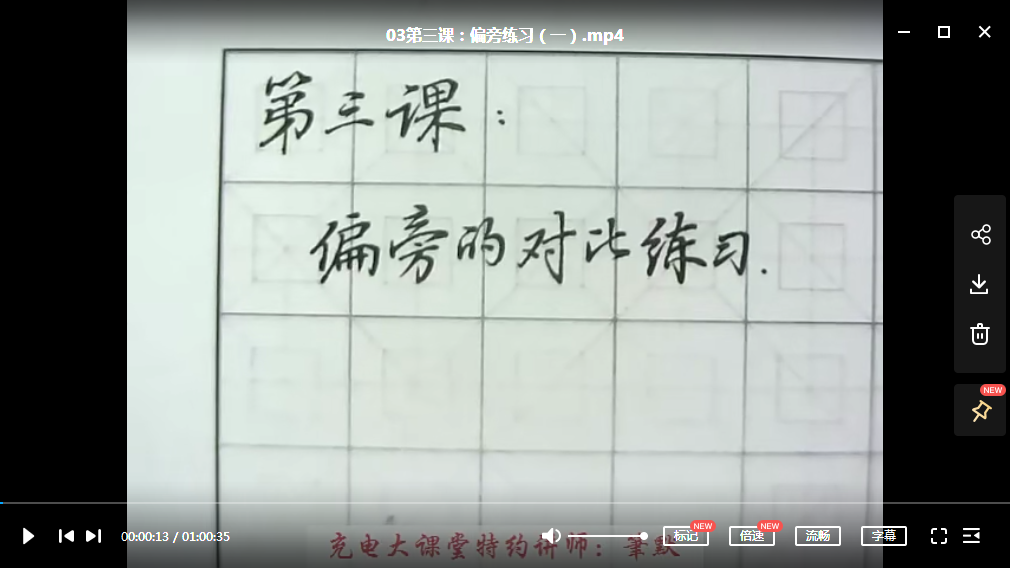 03第三课：偏旁练习（一）.mp4
第三课：
偏旁的对比练习.
NEW
00:00:13 / 01:00:35
标记 NEW
倍速 NEW
流畅
字幕
充电大课堂特约讲师：筆默